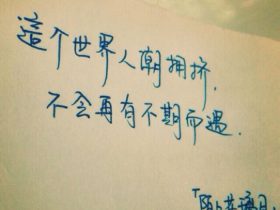 這个世界人潮拥挤,
不会再有不期而遇.
「陌上